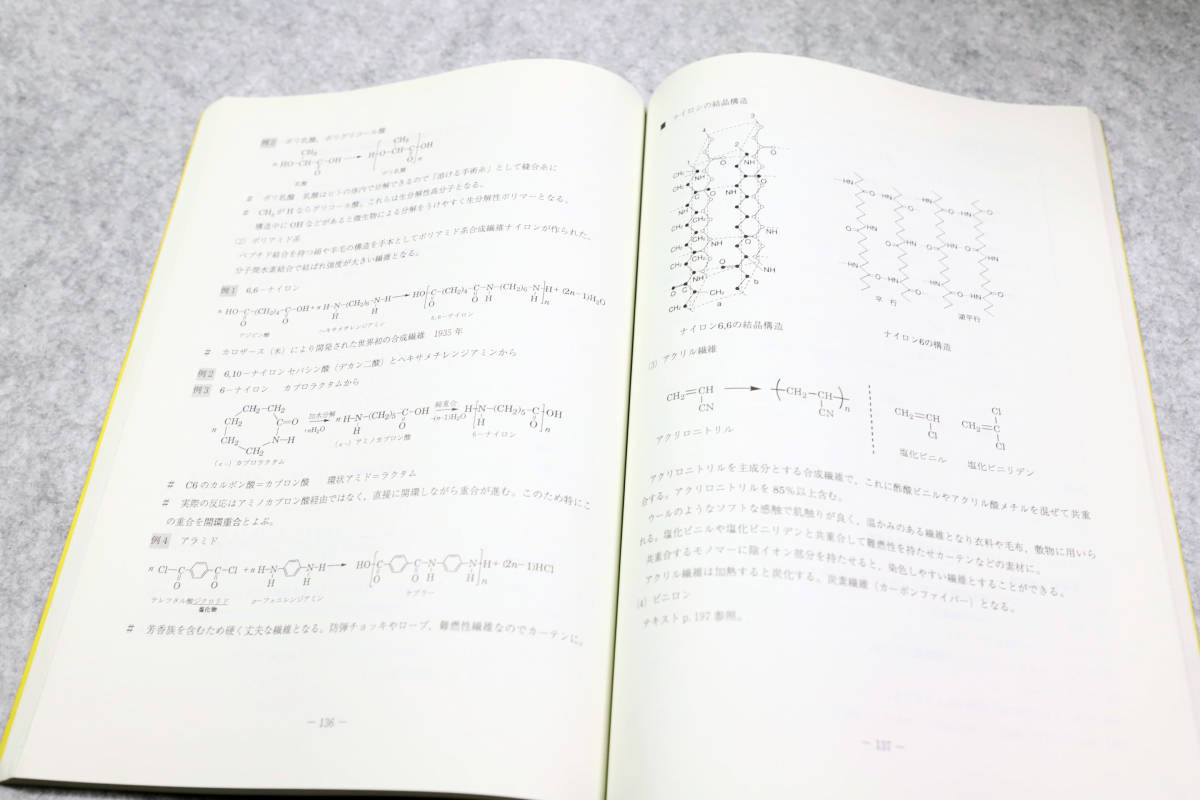 例2 ポリ乳酸，ポリグリコール酸
CH₃ CH₃
n HO-CH-C-OH → H[O-CH-C]n
O O
乳酸 ポリ乳酸
# ポリ乳酸 乳酸はヒトの体内で分解できるので「溶ける手術糸」として縫合糸に
# CH₃がHならグリコール酸。これらは生分解性高分子となる。
構造中にOHなどがあると微生物による分解をうけやすく生分解性ポリマーとなる。
(2) ポリアミド系
ペプチド結合を持つ絹や羊毛の構造を手本としてポリアミド系合成繊維ナイロンが作られた。
分子間水素結合で結ばれ強度が大きい繊維となる。
例1 6,6－ナイロン
HO-C-(CH₂)₄-C-OH+n H-N-(CH₂)₆-N-H → HO[C-(CH₂)₄-C-N-(CH₂)₆-N]nH+(2n-1)H₂O
O O H H O O H H
アジピン酸 ヘキサメチレンジアミン 6,6-ナイロン
# カロザース（米）により開発された世界初の合成繊維 1935年
例2 6,10－ナイロン セバシン酸（デカン二酸）とヘキサメチレンジアミンから
例3 6－ナイロン カプロラクタムから
CH₂-CH₂ 加水分解 縮重合
n CH₂ C=O +nH₂O → n H-N-(CH₂)₅-C-OH -(n-1)H₂O → H[N-(CH₂)₅-C]nOH
CH₂ N-H H O H O
CH₂ (ε-)アミノカプロン酸 6－ナイロン
(ε-)カプロラクタム
# C6のカルボン酸＝カプロン酸 環状アミド＝ラクタム
# 実際の反応はアミノカプロン酸経由ではなく，直接に開環しながら重合が進む。このため特にこ
の重合を開環重合とよぶ。
例4 アラミド
n Cl-C-C-Cl +n H-N-N-H → HO[C-C-N-N]nH+(2n-1)HCl
O O H H O O H H
テレフタル酸ジクロリド p-フェニレンジアミン ケブラー
塩化物
# 芳香族を含むため硬く丈夫な繊維となる。防弾チョッキやロープ，難燃性繊維なのでカーテンに。
－136－
■ ナイロンの結晶構造
4 3
2 O
1 O NH
CH₂ NH
CH₂ C O
NH NH
CH₂ CH₂
CH₂ NH
CH₂ O NH
O C NH b
CH₂ CH₂ a
ナイロン6,6の結晶構造
HN O HN O HN O HN O
平行 逆平行
ナイロン6の構造
(3) アクリル繊維
CH₂=CH → (CH₂-CH)n
CN CN
アクリロニトリル
CH₂=CH Cl
Cl CH₂=C
Cl
塩化ビニル 塩化ビニリデン
アクリロニトリルを主成分とする合成繊維で，これに酢酸ビニルやアクリル酸メチルを混ぜて共重
合する。アクリロニトリルを85%以上含む。
ウールのようなソフトな感触で肌触りが良く，温かみのある繊維となり衣料や毛布，敷物に用いら
れる。塩化ビニルや塩化ビニリデンと共重合して難燃性を持たせカーテンなどの素材に。
共重合するモノマーに陰イオン部分を持たせると，染色しやすい繊維とすることができる。
アクリル繊維は加熱すると炭化する。炭素繊維（カーボンファイバー）となる。
(4) ビニロン
テキストp.197参照。
－137－